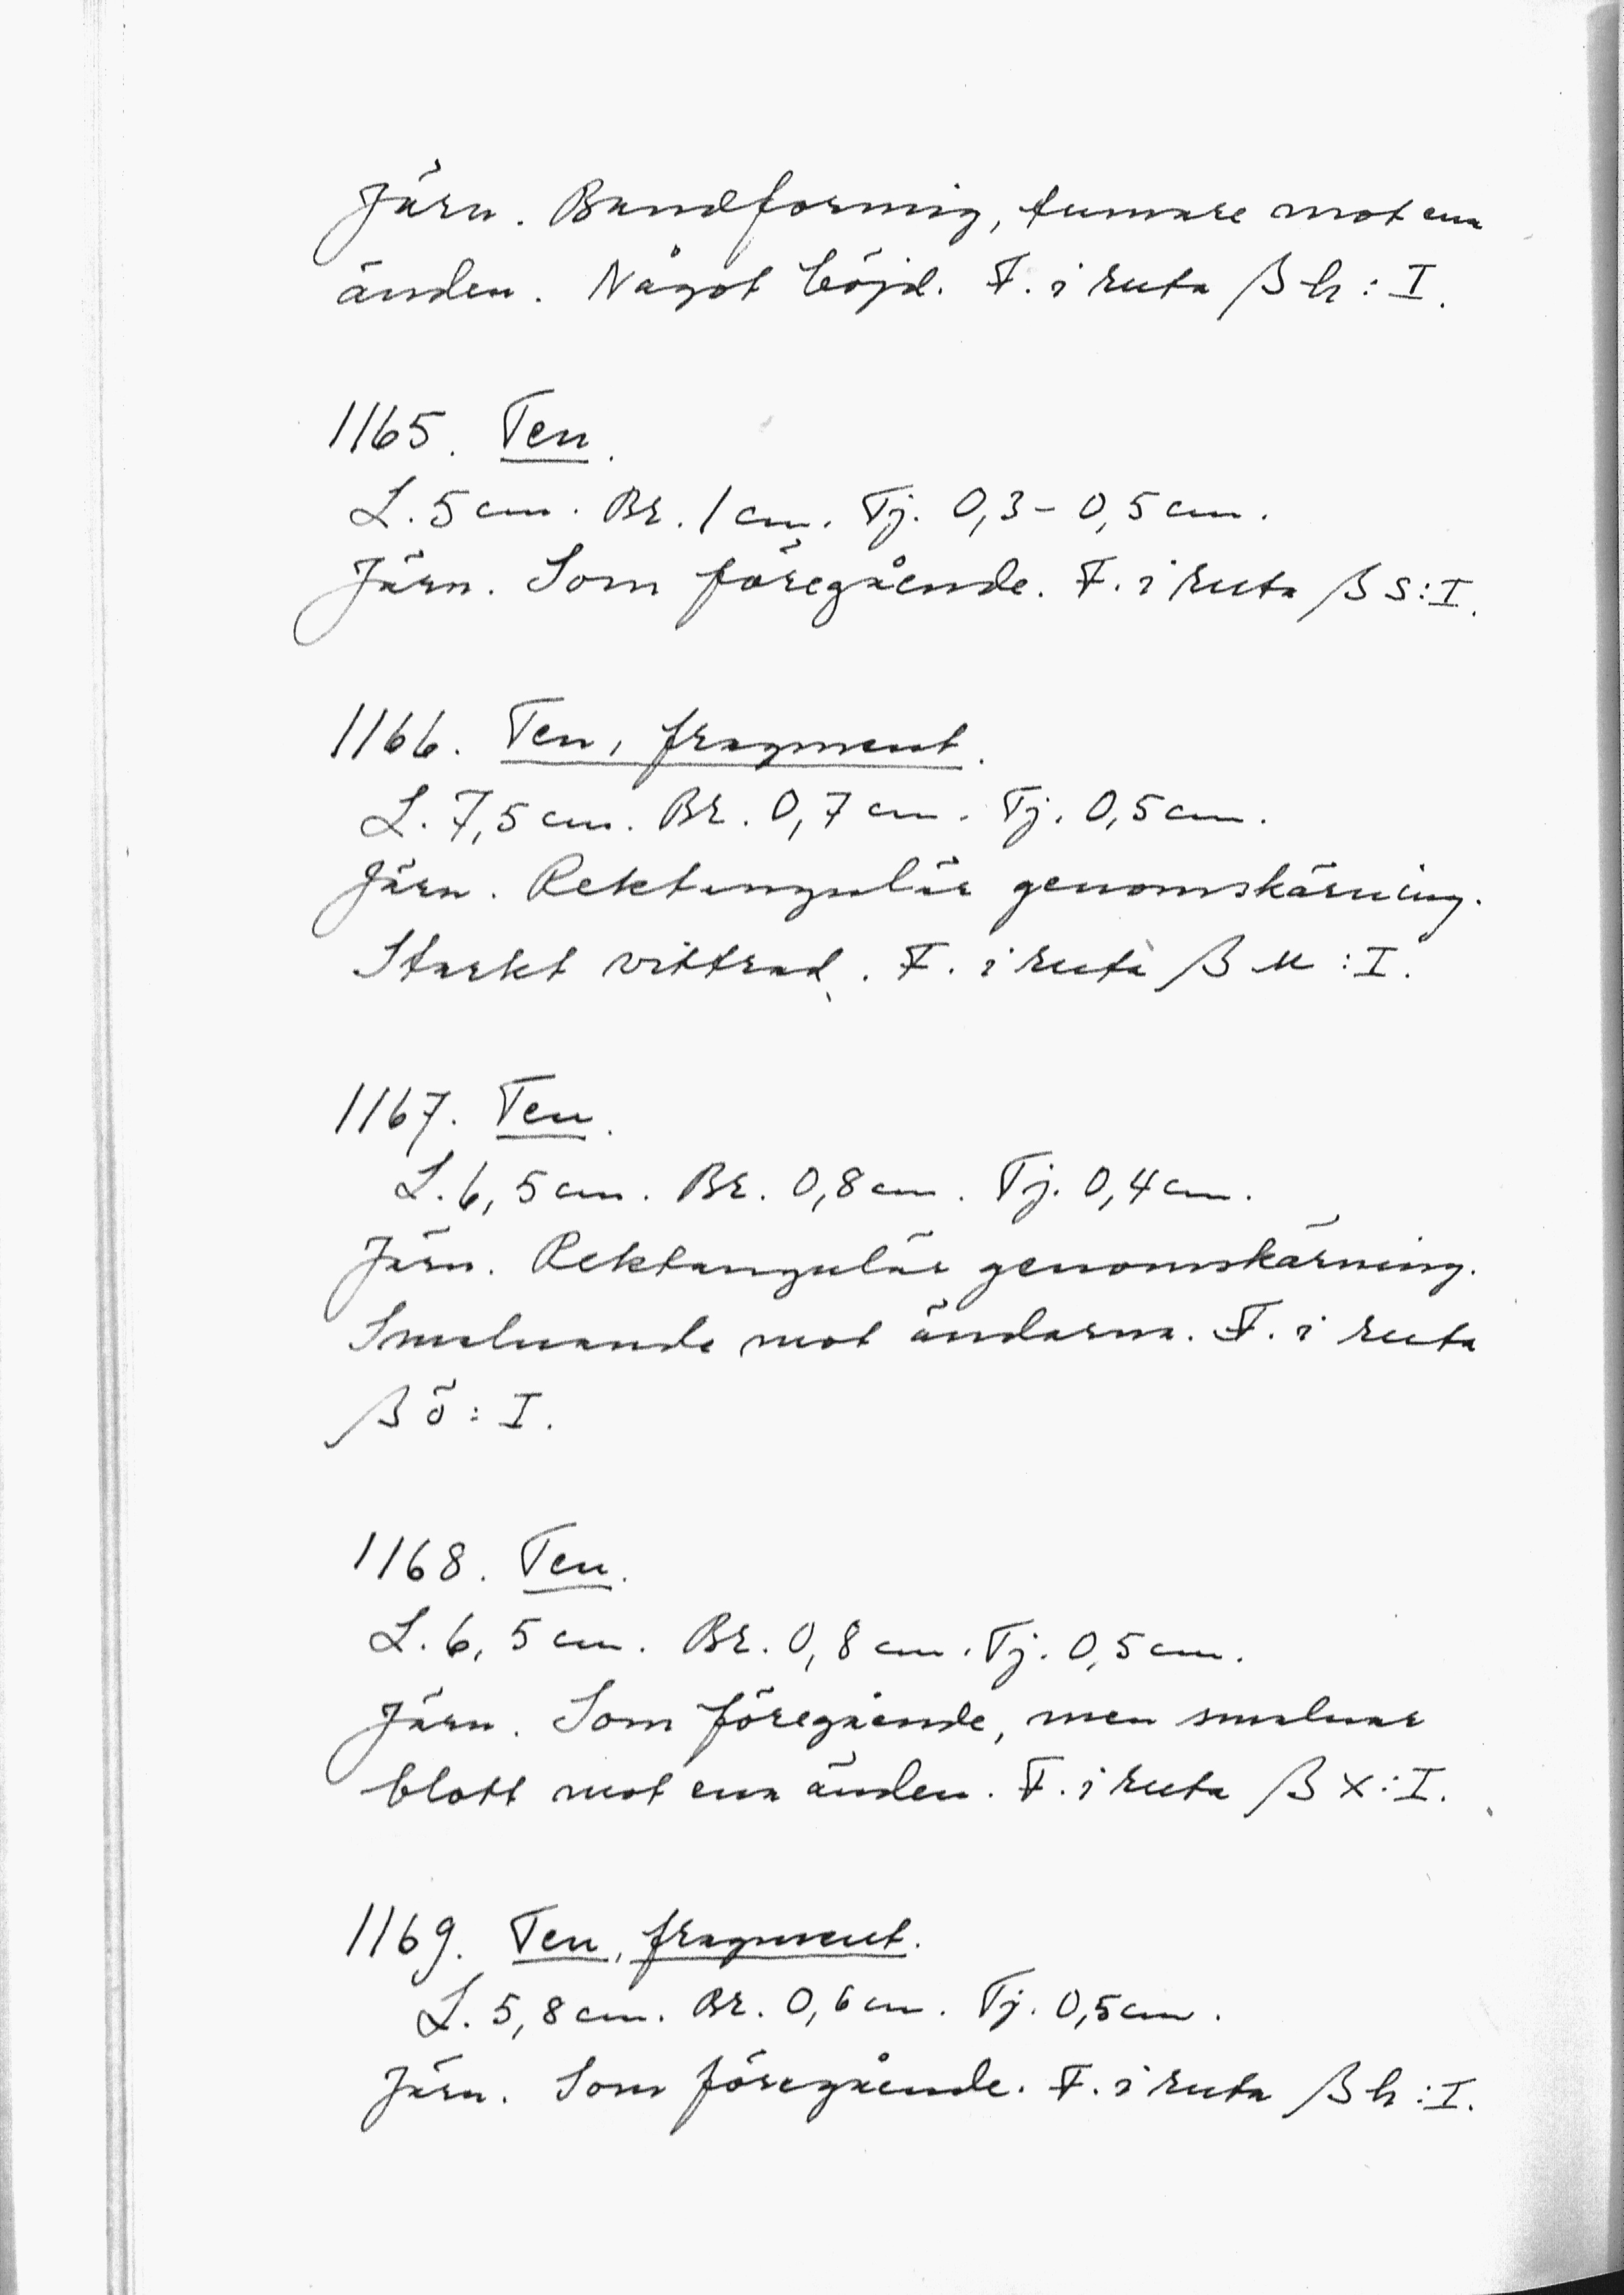 Järn. Bandformig, tunnare mot ena
änden. Något böjd. F. i ruta β h : I.
1165. Ten.
L. 5 cm. Br. 1 cm. Tj. 0,3 - 0,5 cm.
Järn. Som föregående. F. i ruta β s : I.
1166. Ten, fragment.
L. 7,5 cm. Br. 0,7 cm. Tj. 0,5 cm.
Järn. Rektangulär genomskärning.
Starkt vittrad. F. i ruta β u : I.
1167. Ten.
L. 6,5 cm. Br. 0,8 cm. Tj. 0,4 cm.
Järn. Rektangulär genomskärning.
Smalnande mot ändarna. F. i ruta
β ö : I.
1168. Ten.
L. 6,5 cm. Br. 0,8 cm. Tj. 0,5 cm.
Järn. Som föregående, men smalnar
blott mot ena änden. F. i ruta β x : I.
1169. Ten, fragment.
L. 5,8 cm. Br. 0,6 cm. Tj. 0,5 cm.
Järn. Som föregående. F. i ruta β h : I.